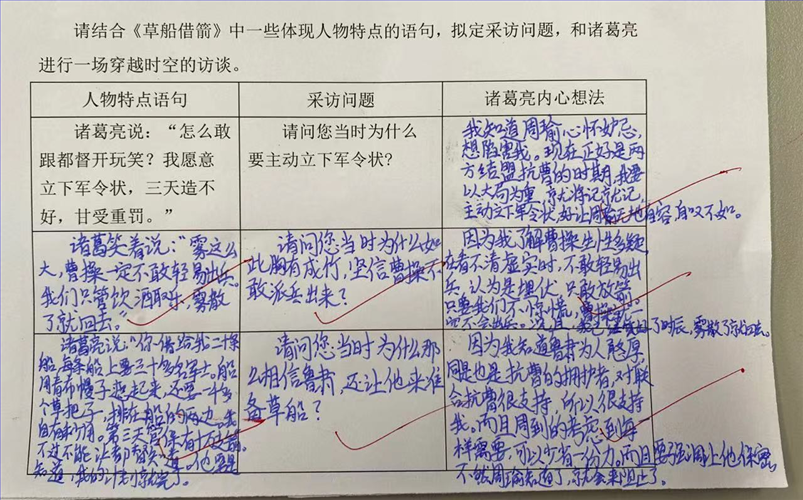 请结合《草船借箭》中一些体现人物特点的语句，拟定采访问题，和诸葛亮
进行一场穿越时空的访谈。
人物特点语句
采访问题
诸葛亮内心想法
诸葛亮说：“怎么敢
跟都督开玩笑？我愿意
立下军令状，三天造不
好，甘受重罚。”
请问您当时为什么
要主动立下军令状?
我知道周瑜心怀妒忌，
想陷害我。现在正好是两
方结盟抗曹的时期，我要
以大局为重，就将记就记，
主动立下军令状，好让周瑜无地自容，自叹不如。
诸葛笑着说：“雾这么
大，曹操一定不敢轻易出兵。
我们只管饮酒取乐，雾散
了就回去。”
请问您当时为什么如
此胸有成竹，坚信曹操不
敢派兵出来？
因为我了解曹操生性多疑，
在看不清虚实时，不敢轻易出
兵，认为是埋伏，只敢放箭。
只要我们不惊慌，
了时辰，雾散了就回去。
诸葛亮说：“你借给我二十条
船，每条船上要三十多名军士。船
用青布幔子遮起来，还要一千多
个草把子，排在船的两边。我
自有妙用。第三天管保有十万支箭。
不过不能让都督知道。他要是
知道，我的计划就完了。
请问您当时为什么那
么相信鲁肃，还让他来准
备草船？
因为我知道鲁肃为人憨厚，
同是也是抗曹的拥护者，对联
合抗曹很支持，所以很支持
我。而且周到的考虑到每
样需要，可以少省一份力。而且要强调让他保密，
不能周瑜知道了，就会来阻止了。